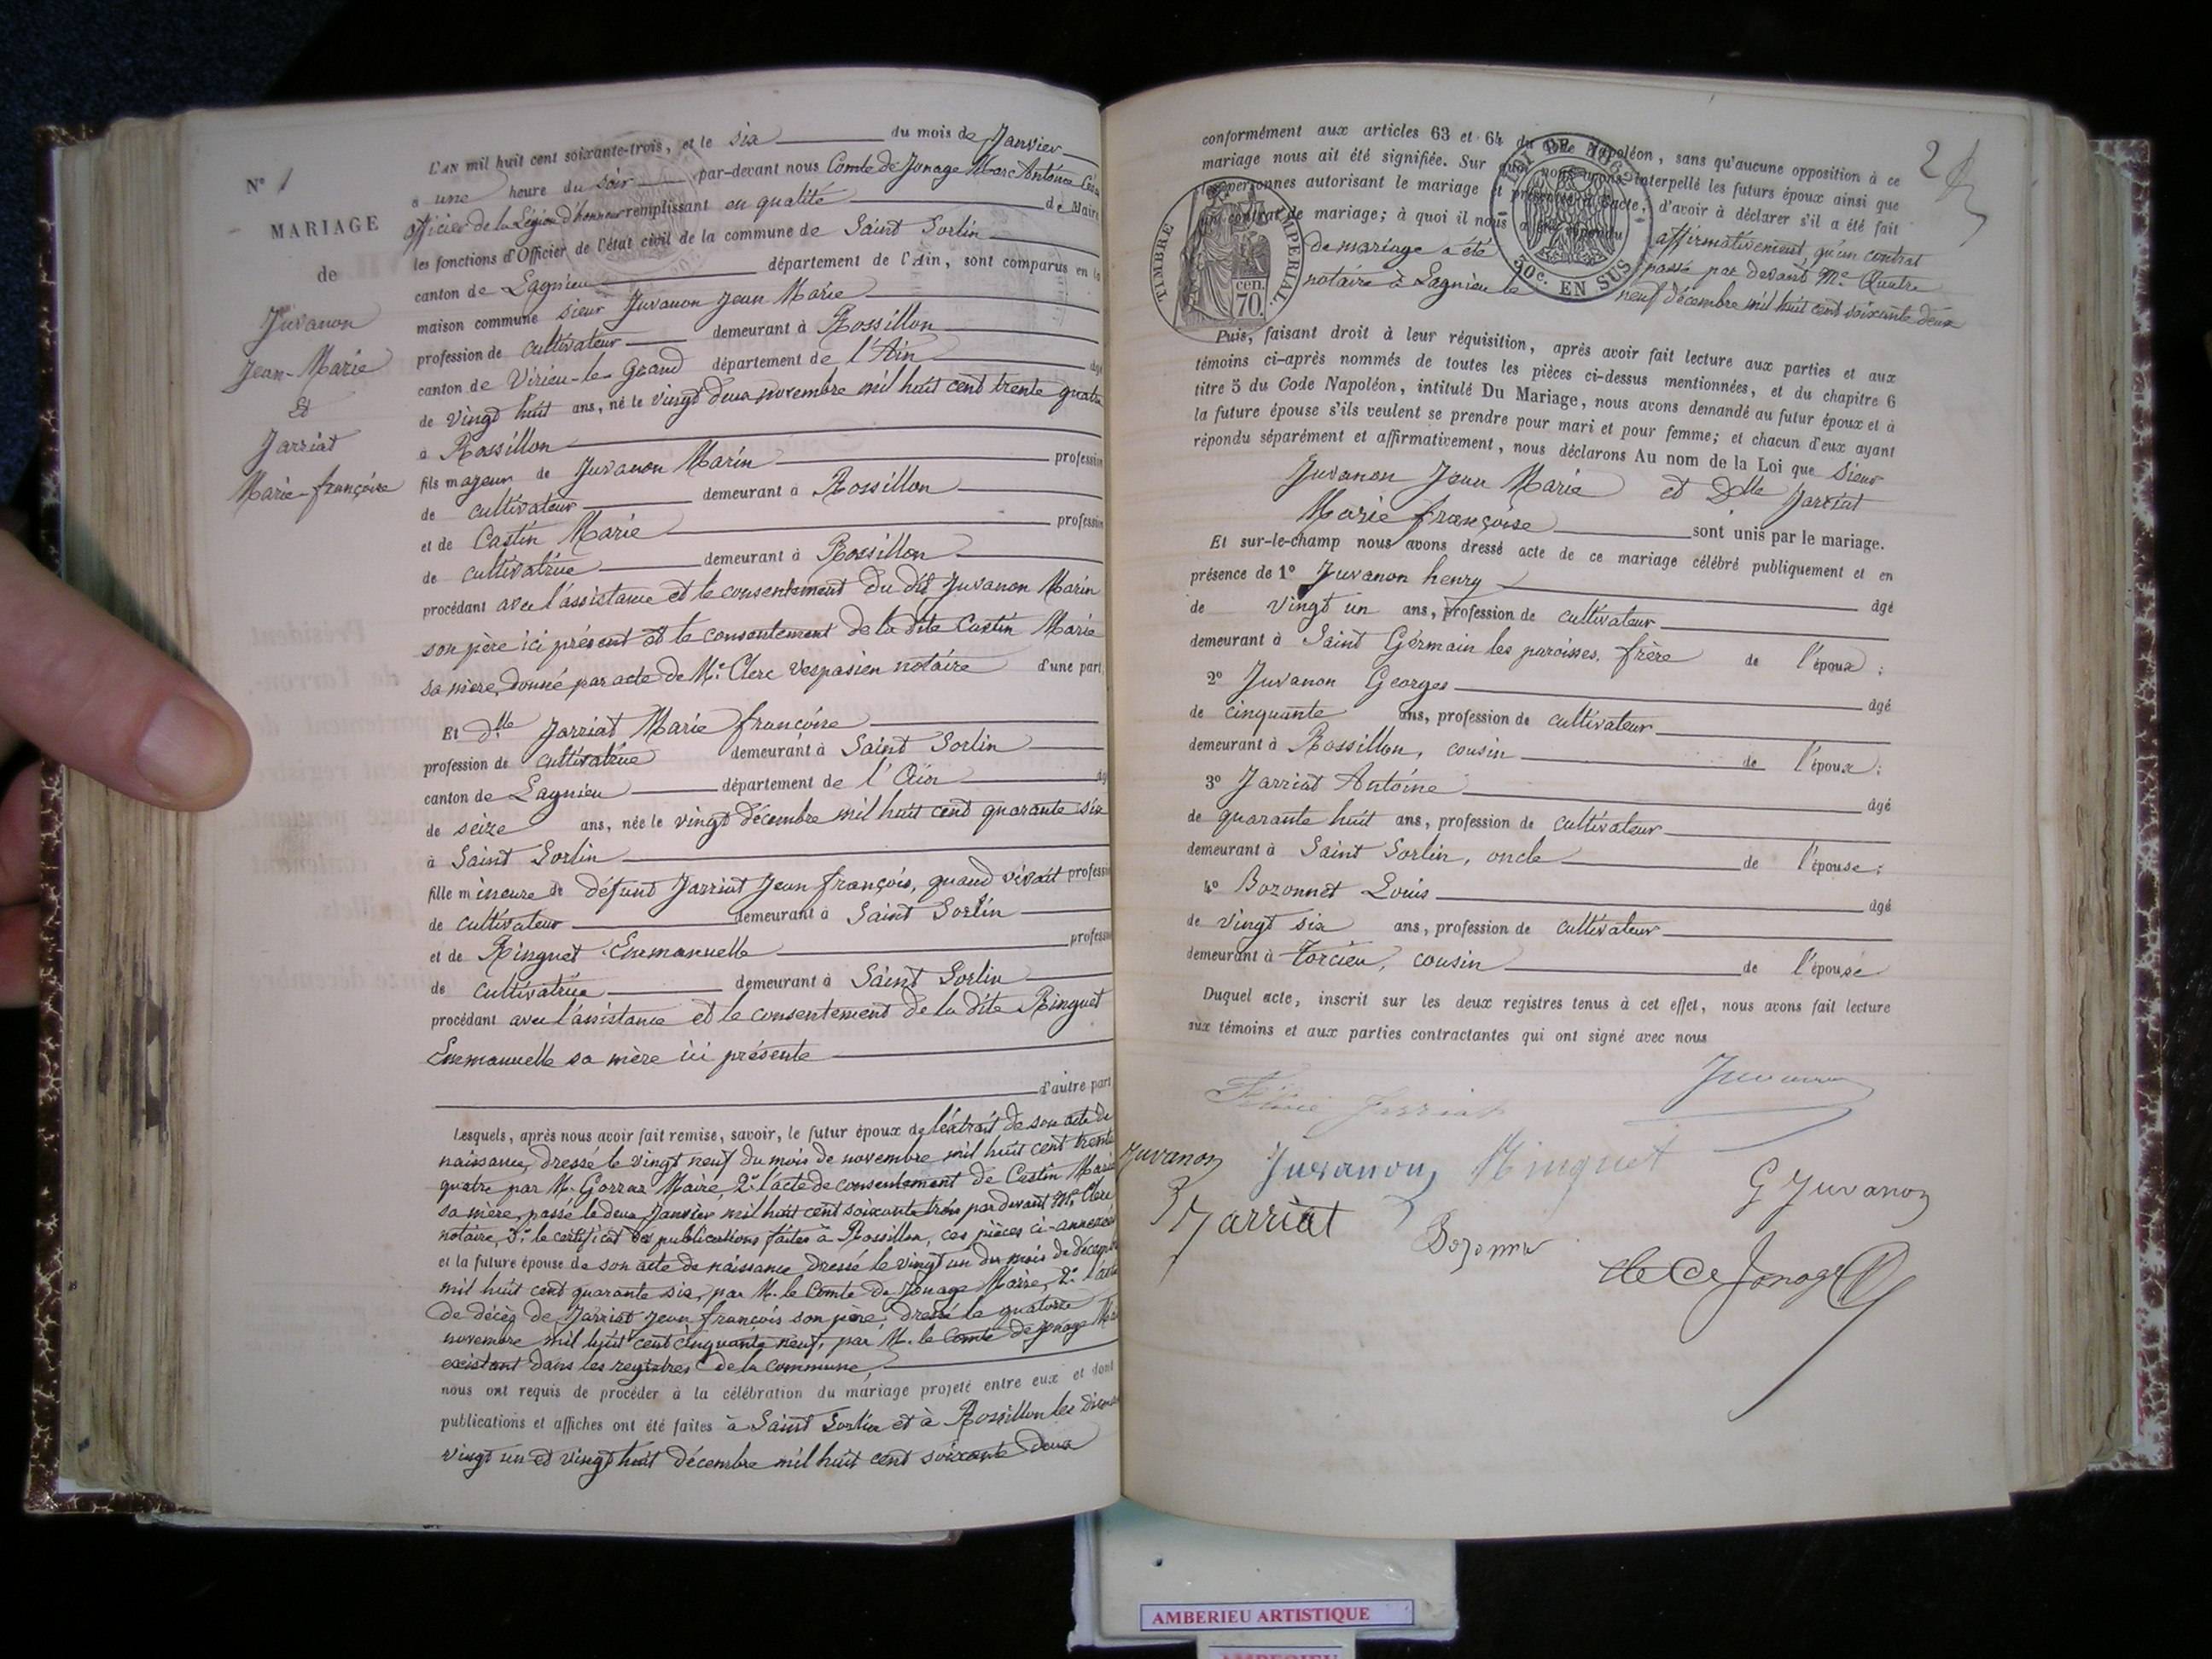 N° 1
MARIAGE
de
Juvanon
Jean-Marie
et
Jarriat
Marie-françoise
L'AN mil huit cent soixante-trois, et le six du mois de Janvier
à une heure du soir par-devant nous Comte de Jonage Marc Antoine César
officier de la Légion d'honneur remplissant en qualité de Maire
les fonctions d'Officier de l'état civil de la commune de Saint Sorlin
canton de Lagnieu département de l'Ain, sont comparus en la
maison commune sieur Juvanon Jean Marie
profession de cultivateur demeurant à Rossillon
canton de Virieu-le-Grand département de l'Ain âgé
de vingt huit ans, né le vingt deux novembre mil huit cent trente quatre
à Rossillon
fils majeur de Juvanon Marin profession
de cultivateur demeurant à Rossillon
et de Castin Marie profession
de cultivatrice demeurant à Rossillon
procédant avec l'assistance et le consentement du dit Juvanon Marin
son père ici présent et le consentement de la dite Castin Marie
sa mère, donné par acte de Me Clerc Vespasien notaire d'une part,
Et Dlle Jarriat Marie françoise
profession de cultivatrice demeurant à Saint Sorlin
canton de Lagnieu département de l'Ain âgé
de seize ans, née le vingt décembre mil huit cent quarante six
à Saint Sorlin
fille mineure de défunt Jarriat Jean françois, quand vivait profession
de cultivateur demeurant à Saint Sorlin
et de Ringuet Emmanuelle profession
de cultivatrice demeurant à Saint Sorlin
procédant avec l'assistance et le consentement de la dite Ringuet
Emmanuelle sa mère ici présente
d'autre part
Lesquels, après nous avoir fait remise, savoir, le futur époux de l'extrait de son acte de
naissance, dressé le vingt neuf du mois de novembre mil huit cent trente
quatre par M. Gorraz Maire, 2° l'acte de consentement de Castin Marie
sa mère, passé le deux Janvier mil huit cent soixante trois par devant Me Clerc
notaire, 3° le certificat des publications faites à Rossillon, ces pièces ci-annexées
et la future épouse de son acte de naissance dressé le vingt un du mois de décembre
mil huit cent quarante six, par M. le Comte de Jonage Maire, 2° l'acte
de décès de Jarriat Jean françois son père, dressé le quatorze
novembre mil huit cent cinquante neuf, par M. le Comte de Jonage Maire
existant dans les registres de la commune,
nous ont requis de procéder à la célébration du mariage projeté entre eux et dont
publications et affiches ont été faites à Saint Sorlin et à Rossillon les dimanches
vingt un et vingt huit décembre mil huit cent soixante deux
2
conformément aux articles 63 et 64 du Code Napoléon, sans qu'aucune opposition à ce
mariage nous ait été signifiée. Sur quoi nous avons interpellé les futurs époux ainsi que
les personnes autorisant le mariage et présentes à l'acte, d'avoir à déclarer s'il a été fait
un contrat de mariage; à quoi il nous a été répondu affirmativement, qu'un contrat
de mariage a été passé par devant Me Quatre
notaire à Lagnieu le neuf décembre mil huit cent soixante deux
TIMBRE IMPÉRIAL
cen.
70.
50c. EN SUS
Puis, faisant droit à leur réquisition, après avoir fait lecture aux parties et aux
témoins ci-après nommés de toutes les pièces ci-dessus mentionnées, et du chapitre 6
titre 5 du Code Napoléon, intitulé Du Mariage, nous avons demandé au futur époux et à
la future épouse s'ils veulent se prendre pour mari et pour femme; et chacun d'eux ayant
répondu séparément et affirmativement, nous déclarons Au nom de la Loi que Sieur
Juvanon Jean Marie et Dlle Jarriat
Marie françoise sont unis par le mariage.
Et sur-le-champ nous avons dressé acte de ce mariage célébré publiquement et en
présence de 1° Juvanon henry âgé
de vingt un ans, profession de cultivateur
demeurant à Saint Germain les paroisses, frère de l'époux;
2° Juvanon Georges âgé
de cinquante ans, profession de cultivateur
demeurant à Rossillon, cousin de l'époux;
3° Jarriat Antoine âgé
de quarante huit ans, profession de cultivateur
demeurant à Saint Sorlin, oncle de l'épouse;
4° Bozonnet Louis âgé
de vingt six ans, profession de cultivateur
demeurant à Torcieu, cousin de l'épouse
Duquel acte, inscrit sur les deux registres tenus à cet effet, nous avons fait lecture
aux témoins et aux parties contractantes qui ont signé avec nous
Juvanon
Jarriat
Juvanon Juvanon Ringuet G Juvanon
Jarriat
de Jonage
AMBERIEU ARTISTIQUE
AMBERIEU